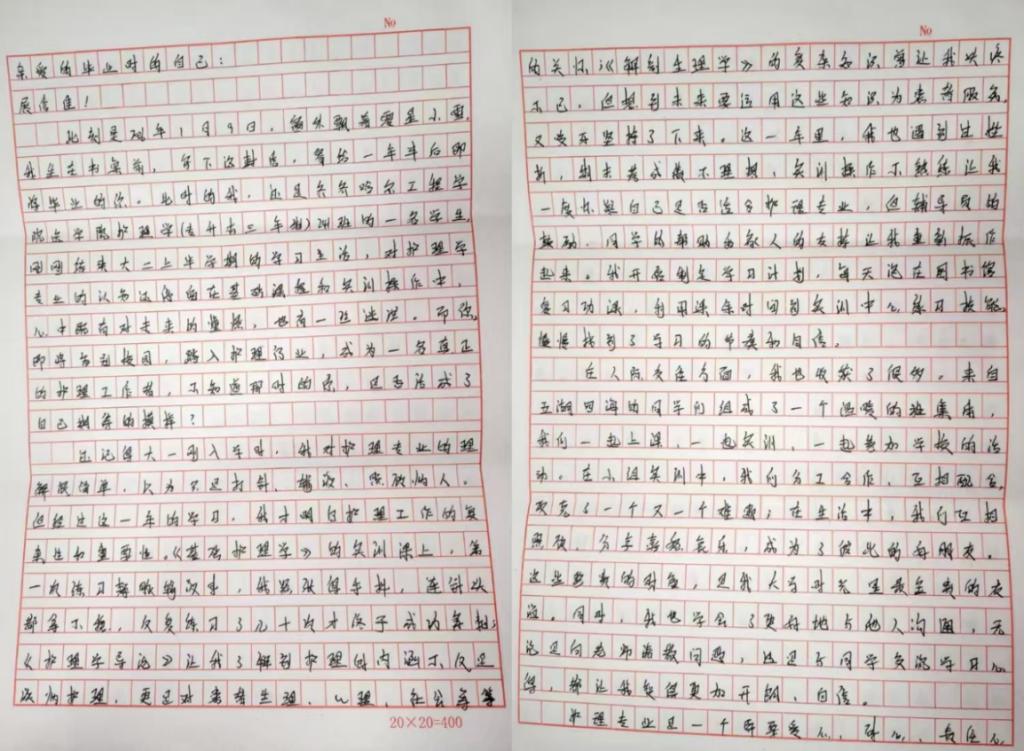 No
亲爱的毕业时的自己：
展信佳！
此刻是年1月9日，窗外飘着零星小雪，
我坐在书桌前，写下这封信，寄给一年半后即
将毕业的你。此时的我，还是齐齐哈尔工程学
院学院护理学(专升本三年制)班的一名学生，
刚刚结束大二上半学期的学习生活，对护理学
专业的认知还停留在基础课程和实训操作中，
心中既有对未来的憧憬，也有一些迷茫。而你，
即将告别校园，踏入护理行业，成为一名真正
的护理工作者，不知道那时的你，是否活成了
自己期待的模样？
还记得大一刚入学时，我对护理专业的理
解很简单，以为只是打针、输液、照顾病人。
但经过这一年的学习，我才明白护理工作的复
杂性和重要性。《基础护理学》的实训课上，第
一次练习静脉输液时，我紧张得手抖，连针头
都拿不稳，反复练习了几十次才终于成功穿刺；
《护理学导论》让我了解到护理的内涵不仅是
疾病护理，更是对患者生理、心理、社会等等
20×20=400
No
的关怀；《解剖生理学》的复杂知识曾让我头疼
不已，但想到未来要运用这些知识为患者服务，
又咬牙坚持了下来。这一年里，我也遇到过挫
折，期末考成绩不理想，实训操作不熟练让我
一度怀疑自己是否适合护理专业，但辅导员的
鼓励、同学的帮助和家人的支持让我重新振作
起来。我开始制定学习计划，每天泡在图书馆
复习功课，利用课余时间到实训中心练习技能，
慢慢找到了学习的节奏和自信。
在人际交往方面，我也收获了很多。来自
五湖四海的同学们组成了一个温暖的班集体，
我们一起上课，一起实训，一起参加学校的活
动。在小组实训中，我们分工合作，互相配合，
攻克了一个又一个难题；在生活中，我们互相
照顾，分享喜怒哀乐，成为了彼此的好朋友。
这些真挚的时光，是我大学时光里最宝贵的财
富。同时，我也学会了更好地与他人沟通，无
论是向老师请教问题，还是与同学交流学习心
得，都让我变得更加开朗、自信。
护理专业是一个需要爱心、耐心、责任心